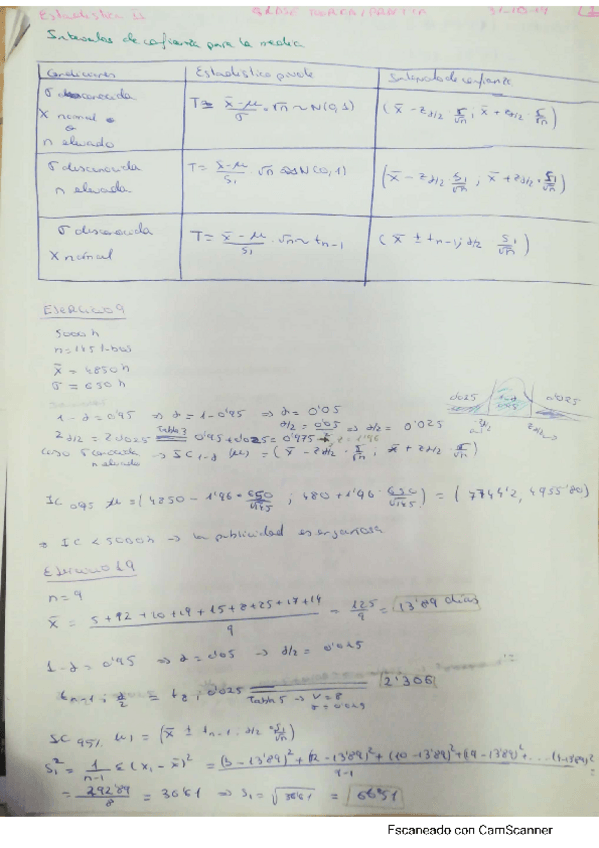 Estadística II CLASE NORMA/PRACTICA 31-10-19
Intervalos de confianza para la media
Condiciones Estadístico pivote Intervalo de confianza
σ desconocida
X normal o
o
n elevado
T = x̄-μ/σ · √n ~ N(0,1)
(x̄ - z α/2 · σ/√n ; x̄ + z α/2 · σ/√n)
σ desconocida
n elevada
T = x̄-μ/S₁ √n ≈ N(0,1)
(x̄ - z α/2 · S₁/√n ; x̄ + z α/2 · S₁/√n)
σ desconocida
X normal
T = x̄-μ/S₁ · √n ~ t n-1
(x̄ ± t n-1; α/2 S₁/√n)
EJERCICIO 9
5000 h
x̄ = 4850 h
σ = 650 h
1-α = 0'95 ⇒ α = 1-0'95 ⇒ α = 0'05
α/2 = 0'05/2 ⇒ α/2 = 0'025
z α/2 = z 0'025 Tabla 3 0'95 + 0'025 = 0'975 → z = 1'96
0'025 0'025
caso σ conocida
n elevado → IC 1-α (μ) = (x̄ - z α/2 · σ/√n ; x̄ + z α/2 · σ/√n)
IC 0'95 μ = (4850 - 1'96 · 650/√145 ; 480 + 1'96 · 650/√145) = (4744'2, 4955'80)
⇒ IC < 5000h → la publicidad es engañosa
Ejercicio 19
n = 9
x̄ = 5+12+10+19+15+8+25+17+14 / 9 = 125/9 = 13'89 días
1-α = 0'95 ⇒ α = 0'05 → α/2 = 0'025
t n-1; α/2 = t 8; 0'025 2'306
Tabla 5 → V = 8
IC 95% μ = (x̄ ± t n-1; α/2 · S₁/√n)
S₁² = 1/n-1 Σ(xᵢ - x̄)² = (5-13'89)² + (12-13'89)² + (10-13'89)² + (19-13'89)² + ....
= 292'89/8 = 36'61 ⇒ S₁ = √36'61 = 6'051
Escaneado con CamScanner